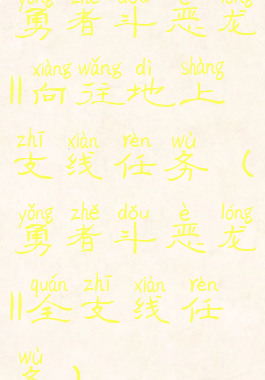 yǒng zhě dòu è lóng
勇者斗恶龙
xiàng wǎng dì shàng
||向往地上
zhī xiàn rèn wù
支线任务（
yǒng zhě dǒu è lóng
勇者斗恶龙
quán zhī xiàn rèn
||全支线任
wù
务）